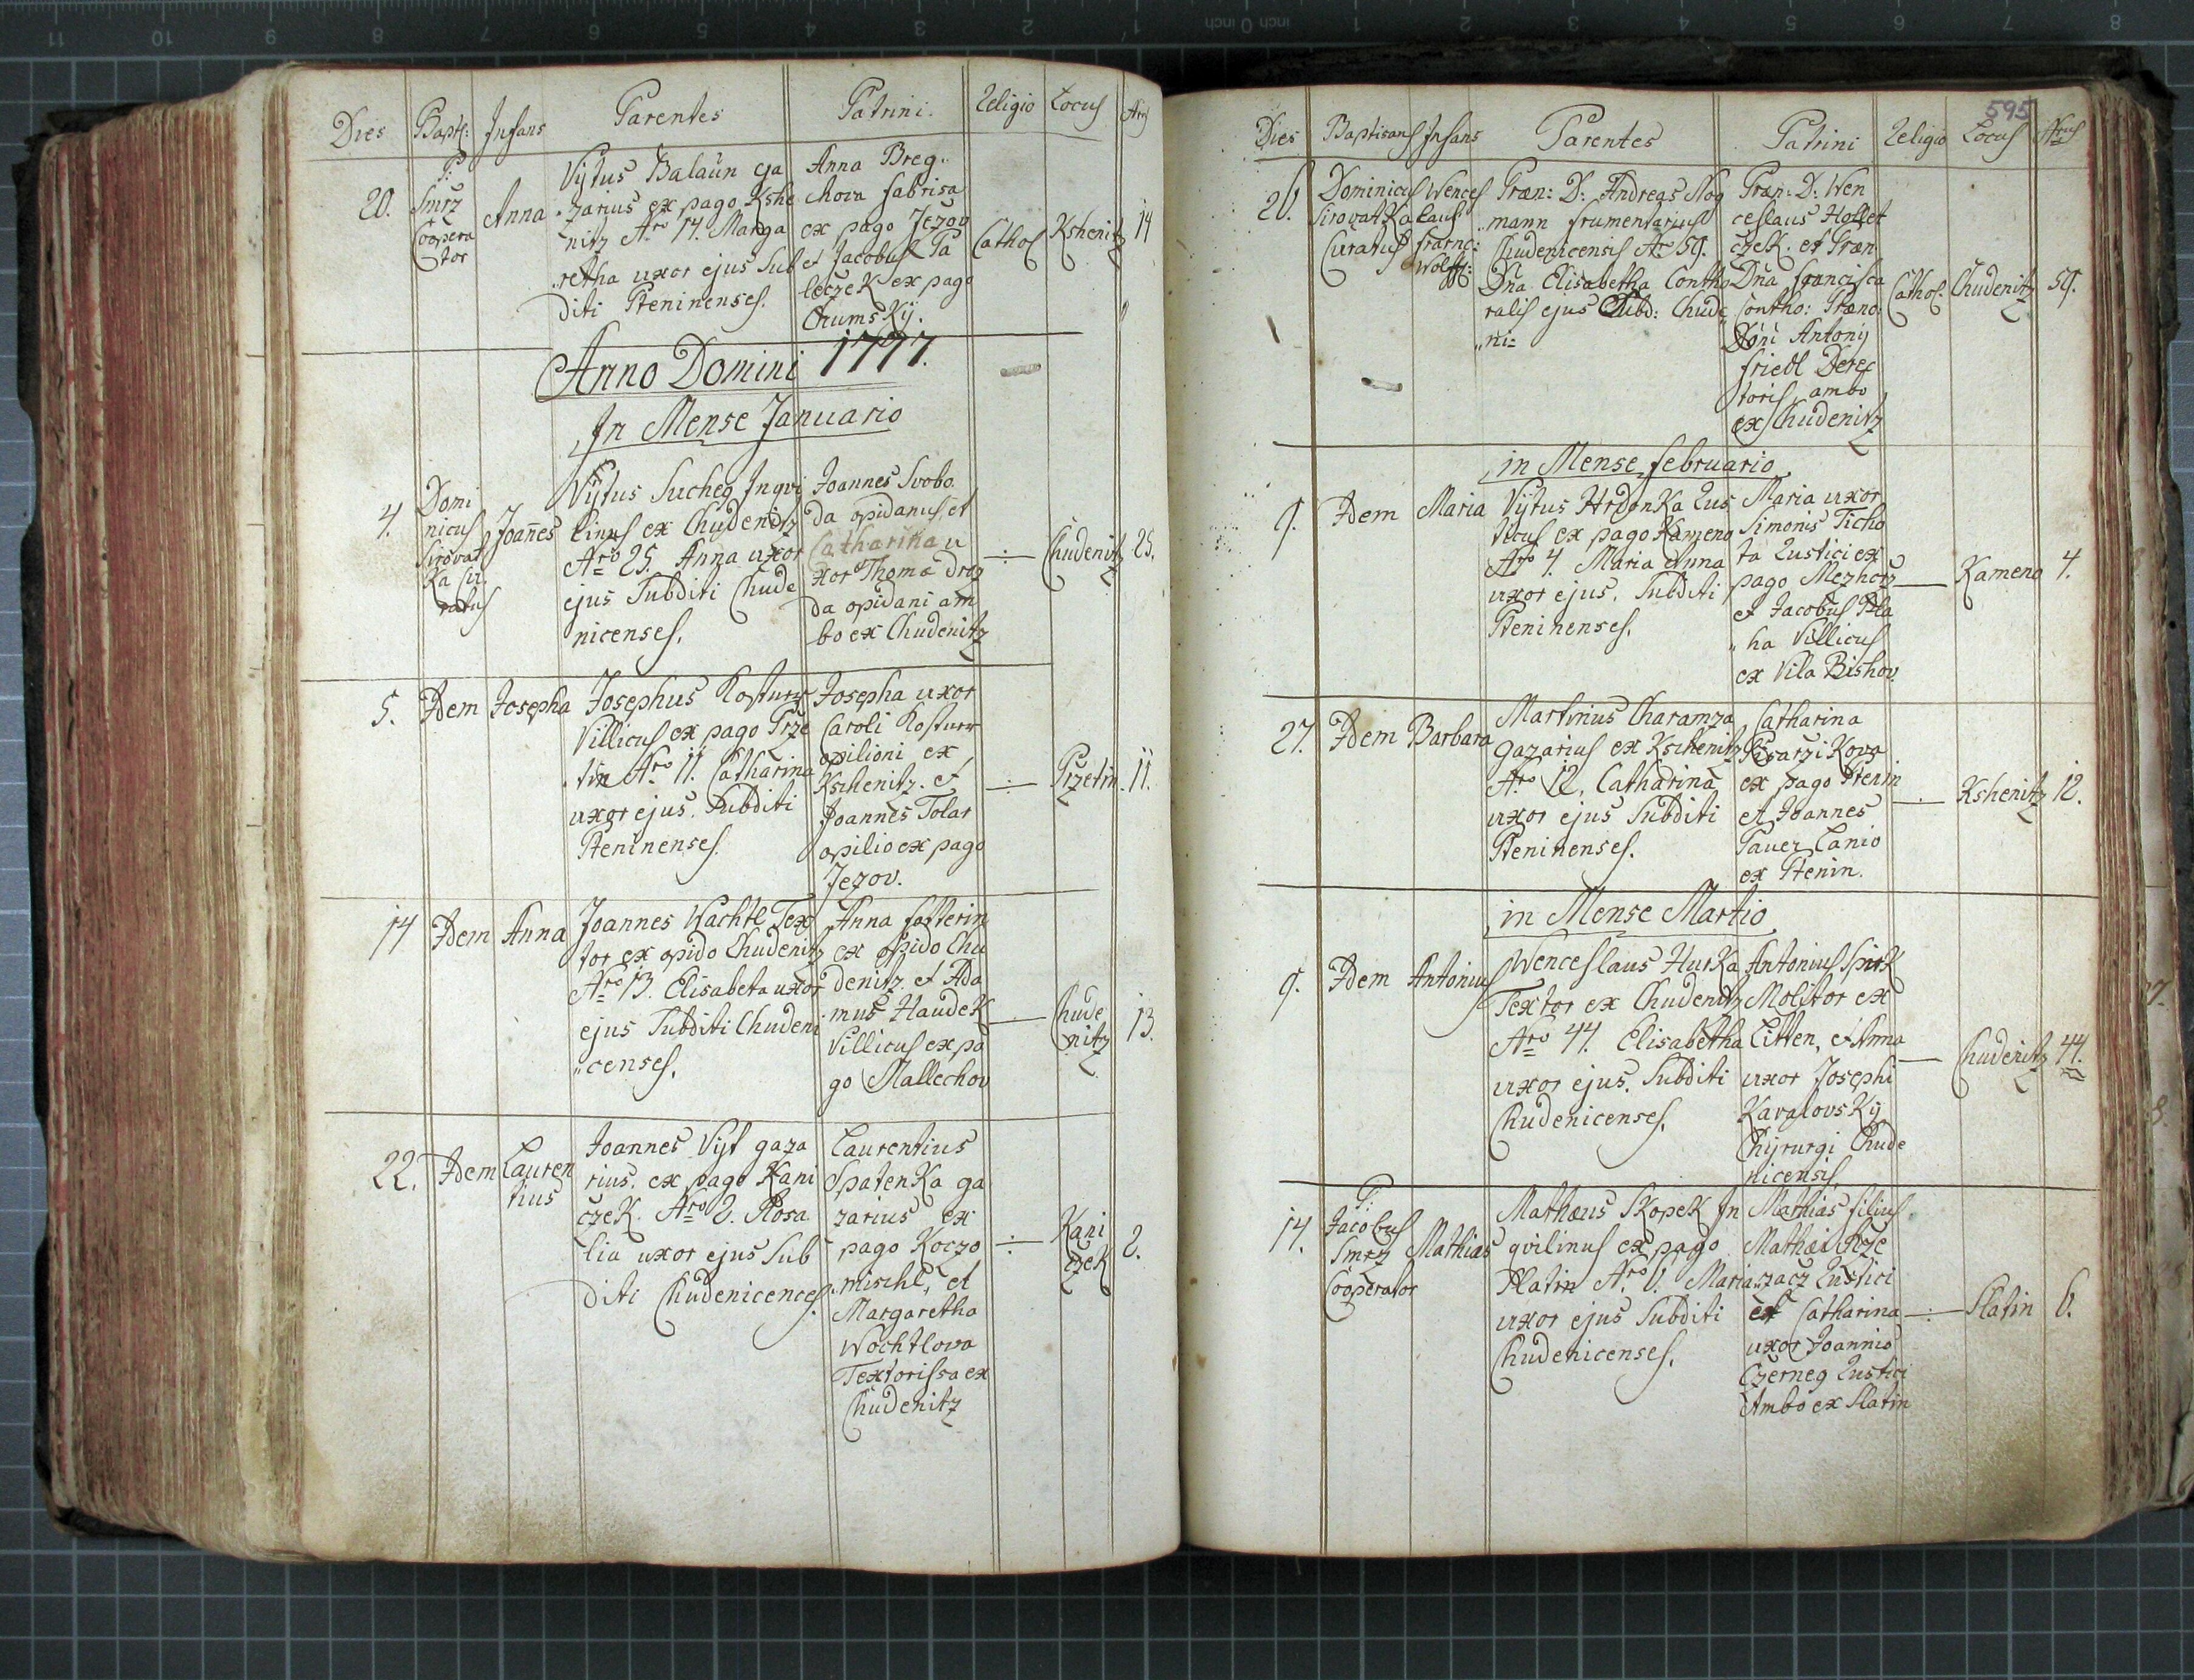 Dies Bapt: Infans Parentes Patrini. Religio Locus Nro
20.
P:
Smrz
Coopera
tor
Anna
Vytus Balaun ga
zarius ex pago Kshe
nitz Nro 14. Marga
retha uxor ejus Sub
diti Pteninenses.
Anna Breg„
chova fabrisa
ex pago Jezov
et Jacobus Pa
leczek ex pago
Chumsky.
Cathol
Kshenitz
14
Anno Domini 1777.
In Mense Januario
4.
Domi
nicus
Sirovat
ka Cu
ratus
Joañes
Vytus Sucheg Inqvi
linus ex Chudenitz
Nro 25. Anna uxor
ejus Subditi Chude
nicenses.
Joannes Svobo
da opidanus, et
Catharina u
xor Thomæ Droz
da opidani am
bo ex Chudenitz
Chudenitz
25.
5. Idem Josepha
Josephus Kosturz
Villicus ex pago Prze
tin Nro 11. Catharina
uxor ejus. Subditi
Pteninenses.
Josepha uxor
Caroli Kosturz
opilioni ex
Kschenitz. et
Joannes Tolar
opilio ex pago
Jezov.
Przetin
11.
14 Idem Anna
Joannes Wachtl Tex
tor ex opido Chudenitz
Nro 13. Elisabeta uxor
ejus Subditi Chudeni
„censes.
Anna
ex opido Chu
denitz. et Ada
mus Haudek
Villicus ex pa
go Mallechov
Chude
nitz
13.
22. Idem Lauren
tius
Joannes Vyt gaza
rius. ex pago Kani
czek. Nro 2. Rosa
lia uxor ejus Sub
diti Chudenicences.
Laurentius
Spatenka ga
zarius ex
pago Koczo
mischl, et
Margaretha
Wochtlova
Textorissa ex
Chudenitz
Kani
czek
2.
595
Dies Baptisans Infans Parentes Patrini Religio Locus Nrus
26.
Dominicus
Sirovatka
Curatus
Wences
laus
Franc:
Wolffg:
Præn: D: Andreas Nog
„mann frumentarius
Chudenicensis Nro 59.
Dña Elisabetha Contho
ralis ejus Subd: Chude
„ni=
Præn: D: Wen
ceslaus Hollet
czek. et Præn
Dña Francisca
Contho: Præno:
Dõni Antonij
Friedl Derec
toris, ambo
ex Chudenitz
Cathol.
Chudenitz
59.
in Mense Februario
9. Idem Maria
Vytus Hrdonka Rus
ticus ex pago Kameno
Nro 4. Maria Anna
uxor ejus. Subditi
Pteninenses.
Maria uxor
Simonis Ticho
ta Rustici ex
pago Mezhorz
et Jacobus Bla
„ha Villicus
ex Vila Bishov.
Kameno
4.
27. Idem Barbara
Martinus Charamza
gazarius ex Kschenitz
Nro 12. Catharina
uxor ejus Subditi
Pteninenses.
Catharina
Pivarzikova
ex pago Ptenin
et Joannes
Pauer Lanio
ex Ptenin.
Kshenitz
12.
in Mense Martio
9. Idem Antonius
Wenceslaus Hurka
Textor ex Chudenitz
Nro 44. Elisabetha
uxor ejus. Subditi
Chudenicenses.
Antonius Spirk
Molitor ex
Litten, et Anna
uxor Josephi
Kavalovsky
Chyrurgi Chude
nicensis.
Chudenitz
44.
14.
P:
Jacobus
Smrz
Cooperator
Mathias
Mathæus Skopek In
qvilinus ex pago
Slatin Nro 6. Maria
uxor ejus Subditi
Chudenicenses.
Mathias filius
Mathæi Rze
„zacz Rustici
et Catharina
uxor Joannis
Czerneg Rustici
Ambo ex Slatin
Slatin
6.